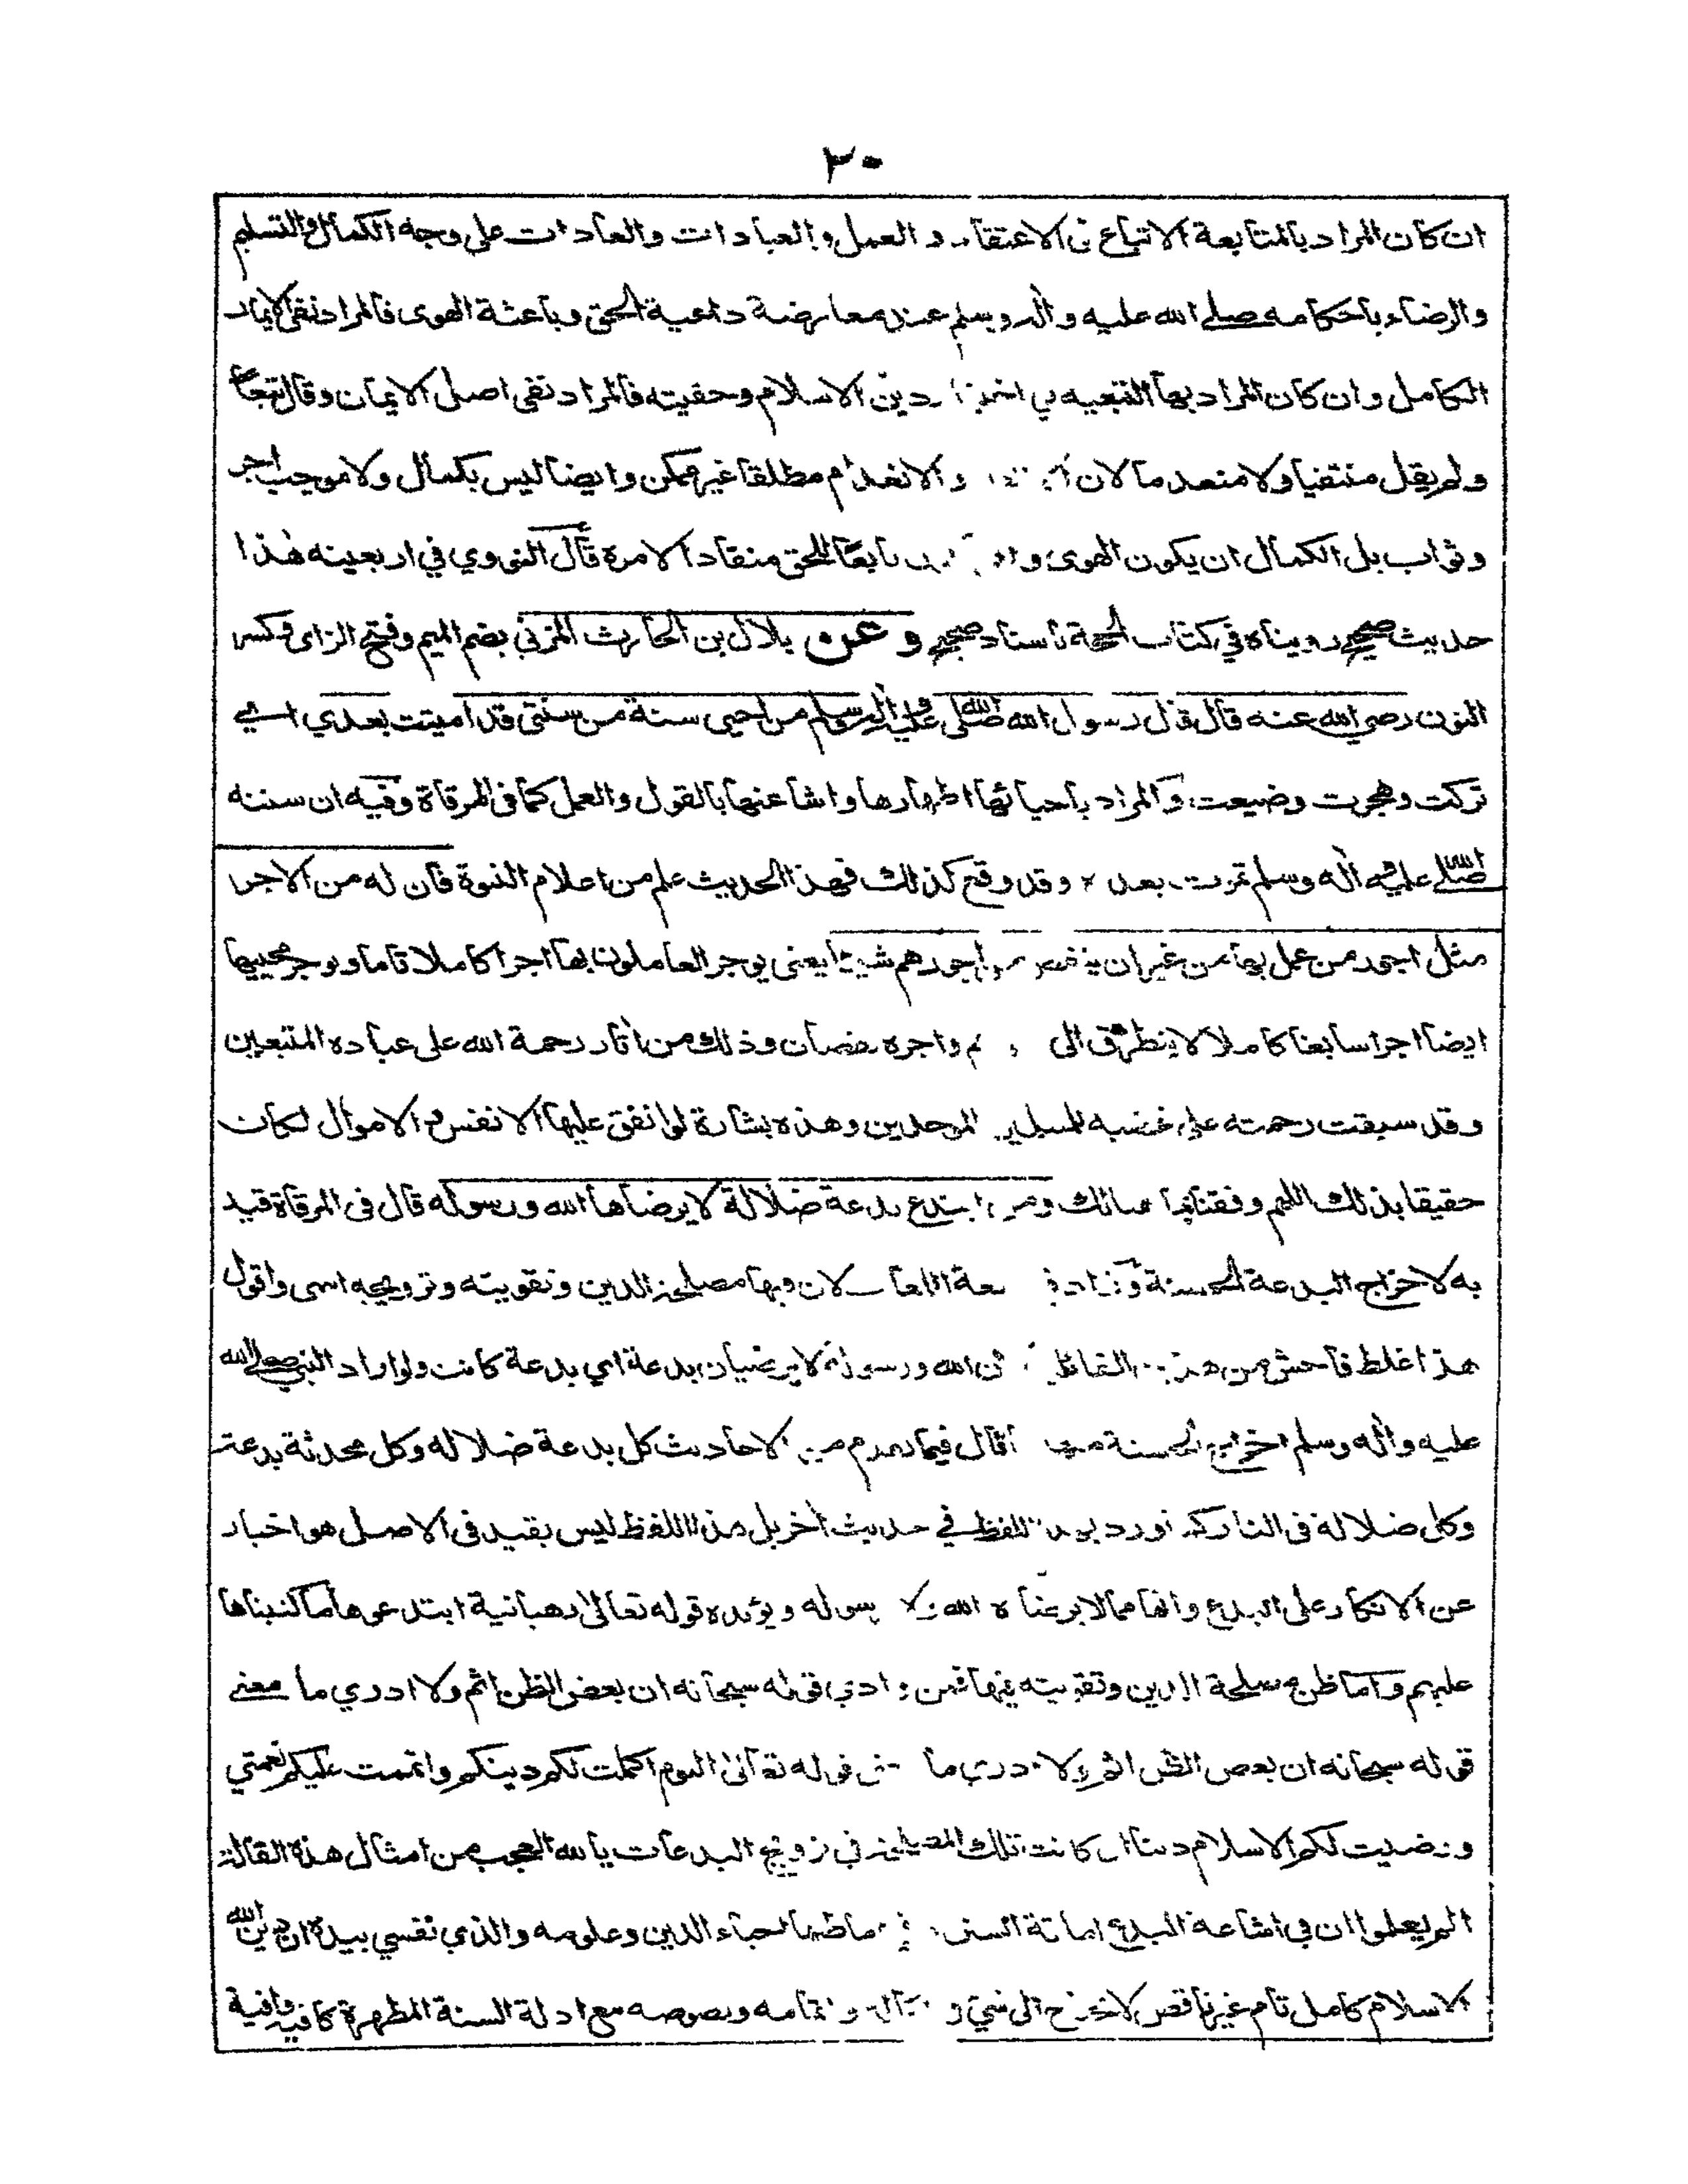 ٣٠
ان كان المراد بالمتابعة الاتباع في الاعتقاد والعمل والعبادات والعادات على وجه الكمال والتسليم
والرضاء باحكامه صلى الله عليه واله وسلم عند معارضة داعية الحق وباعثة الهوى فالمراد نفي الايمان
الكامل وان كان المراد بها دين الاسلام وحقيته فالمراد نفي اصل الايمان وقال تبعا
ولم يقل منتفيا ولا منعدما لان والانعدام مطلقا غير ممكن وايضا ليس بكمال ولا موجب اجر
وثواب بل الكمال ان يكون الهوى تابعا للحق منقادا لامره قال النووي في اربعينه هذا
حديث صحيح رويناه في كتاب الحجة باسناد صحيح وعن بلال بن الحارث المزني بضم الميم وفتح الزاى وكسر
النون رضي الله عنه قال قال رسول الله صلى الله عليه واله وسلم من احيى سنة من سنتي قد اميتت بعدي اي
تركت وهجرت وضيعت والمراد باحيائها اظهارها واشاعتها بالقول والعمل كما في المرقاة وفيه ان سننه
صلى الله عليه واله وسلم تموت بعده وقد وقع كذلك فهذا الحديث علم من اعلام النبوة فان له من الاجر
مثل اجور من عمل بها من غير ان ينقص من اجورهم شيئا يعني يوجر العاملون بها اجرا كاملا تاما ويوجر محييها
ايضا اجرا سابغا كاملا لا يتطرق الى واجره نقصان وذلك من اثار رحمة الله على عباده المتبعين
وقد سبقت رحمته على غضبه للمسلمين الموحدين وهذه بشارة لو انفق عليها الانفس والاموال لكان
حقيقا بذلك اللهم وفقنا ومن ابتدع بدعة ضلالة لا يرضاها الله ورسوله قال في المرقاة قيد
به لاخراج البدعة الحسنة وزاد في لان فيها مصلحة الدين وتقويته وترويجه انتهى واقول
هذا غلط فاحش من هذين القائلين لان الله ورسوله لا يرضيان بدعة اي بدعة كانت ولو اراد النبي صلى الله
عليه واله وسلم اخراج الحسنة منها لما قال فيما تقدم من الاحاديث كل بدعة ضلالة وكل محدثة بدعة
وكل ضلالة في النار كما ورد بهذا اللفظ في حديث اخر بل هذا اللفظ ليس بقيد في الاصل هو اخبار
عن الانكار على البدع وانها مما لا يرضاه الله ولا رسوله ويؤيده قوله تعالى رهبانية ابتدعوها ما كتبناها
عليهم واما ظن مصلحة الدين وتقويته فيها فمن وادي قوله سبحانه ان بعض الظن اثم ولا ادري ما معنى
قوله سبحانه ان بعض الظن اثم ولا ادري ما معنى قوله تعالى اليوم اكملت لكم دينكم واتممت عليكم نعمتي
ورضيت لكم الاسلام دينا ان كانت تلك المصلحة في ترويج البدعات يا لله العجب من امثال هذه القالة
الم يعلموا ان في اشاعة البدع اماتة السنن وفي اماطتها احياء الدين وعلومه والذي نفسي بيده ان دين الله
الاسلام كامل تام غير ناقص لا يحتاج الى شيء في كماله واتمامه ونصوصه مع ادلة السنة المطهرة كافية وافية